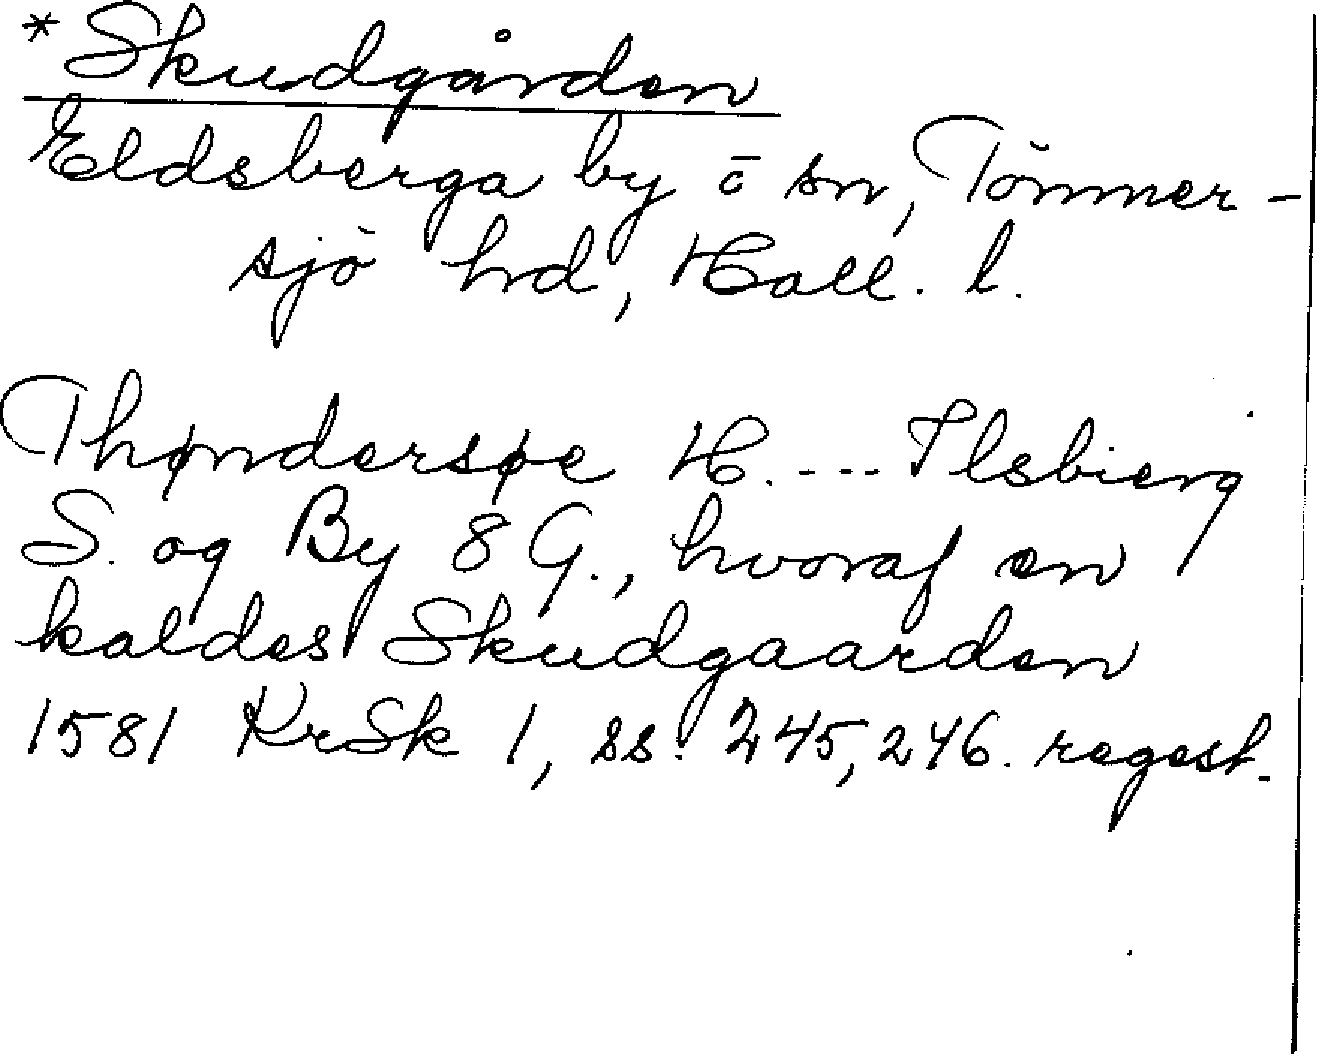 *Skudgården
Eldsberga by o sn, Tönner-
sjö hd, Hall. l.
Thøndersøe H. --- Ilsbierg
S. og By 8 G., hvoraf en
kaldes Skudgaarden
1581 KrSk 1, ss. 245, 246. regest.